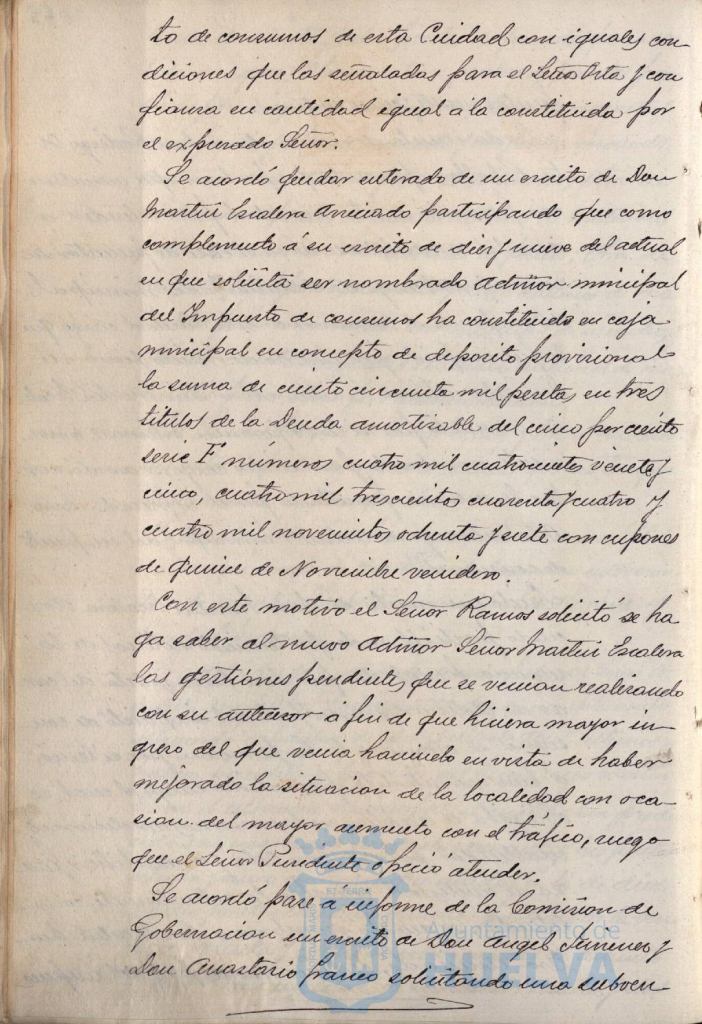 to de consumos de esta Cuidad con iguales con-
diciones que las señaladas para el Señor Orta y con
fianza en cantidad igual á la constituida por
el expresado Señor.
Se acordó quedar enterado de un escrito de Don
Martin Escalera Aniciado participando que como
complemento á su escrito de diez y nueve del actual
en que solicita ser nombrado Admor municipal
del Impuesto de consumos ha constituido en caja
municipal en concepto de deposito provisional
la suma de ciento cincuenta mil pesetas en tres
titulos de la Deuda amortizable del cinco por ciento
serie F números cuatro mil cuatrocientos veneta y
cinco, cuatro mil trescientos cuarenta y cuatro y
cuatro mil novecientos ochenta y siete con cupones
de quince de Noviembre venidero.
Con este motivo el Señor Ramos solicitó se ha
ga saber al nuevo Admor Señor Martin Escalera
las gestiones pendientes que se venian realizando
con su antecesor á fin de que hiciera mayor in-
greso del que venia haciendo en vista de haber
mejorado la situacion de la localidad con oca-
sion del mayor aumento con el tráfico, ruego
que el Señor Presidente ofreció atender.
Se acordó pase á informe de la Comision de
Gobernacion un escrito de Don Angel Jimenez y
Don Anastasio Franco solicitando una subven-
Ayuntamiento de
HUELVA